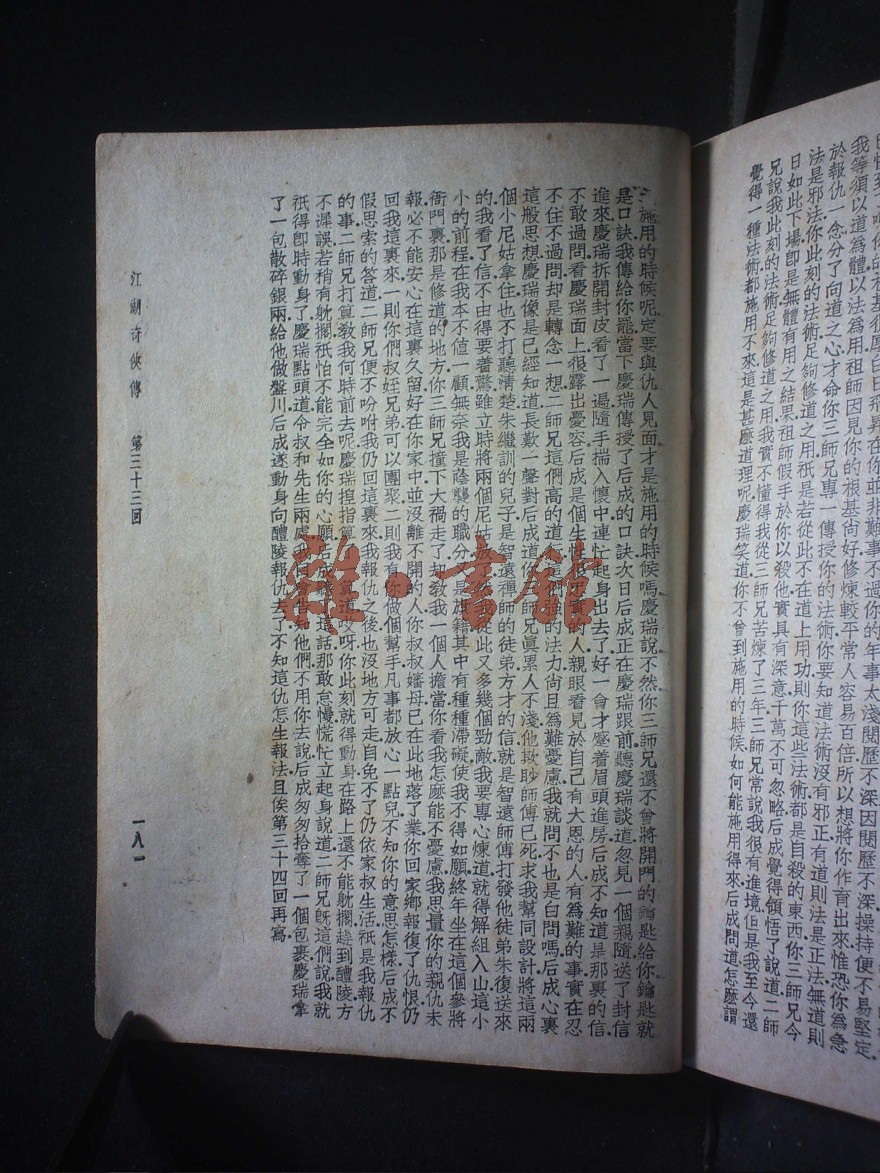 我等須以道為體以法為用祖師因見你的根基尚好修煉較平常人容易百倍所以想將你作育出來惟恐你為急
於報仇一念分了向道之心才命你三師兄專一傳授你的法術你要知道法術沒有邪正有道則法是正法無道則
法是邪法你此刻的法術足夠修道之用祇是若從此不在道上用功則你這些法術都是自殺的東西你三師兄今
日如此下場卽是無體有用之結果祖師假手於你以殺他實具有深意千萬不可忽略后成覺得領悟了說道二師
兄說我此刻的法術足夠修道之用我實不懂得我從三師兄苦煉了三年三師兄常說我很有進境但是我至今還
覺得一種法術都施用不來這是甚麼道理呢慶瑞笑道你不曾到施用的時候如何能施用得來后成問道怎麼謂
施用的時候呢定要與仇人見面才是施用的時候嗎慶瑞說不然你三師兄還不曾將開門的鑰匙給你鑰匙就
是口訣我傳給你罷當下慶瑞傳授了后成的口訣次日后成正在慶瑞跟前聽慶瑞談道忽見一個親隨送了封信
進來慶瑞拆開封皮看了一遍隨手揣入懷中連忙起身出去了好一會才蹙着眉頭進房后成不知道是那裏的信
不敢過問看慶瑞面上很露出憂容后成是個生性實的人親眼看見於自己有大恩的人有為難的事實在忍
不住不過問却是轉念一想二師兄這們高的道強的法力尚且為難憂慮我就問不也是白問嗎后成心裏
這般思想慶瑞像是已經知道長歎一聲對后成道你三師兄眞累人不淺他欺師傅已死求我幫同設計將這兩
個小尼姑拿住也不打聽清楚朱繼訓的兒子是智遠禪師的徒弟方才的信就是智遠師傅打發他徒弟朱復送來
的我看了信不由得要着驚雖立時將兩個尼姑放了從此又多幾個勁敵我要專心煉道就得解組入山這小
小的前程在我本不值一顧無奈我是蔭襲的職分是旗籍其中有種種滯礙使我不得如願終年坐在這個參將
衙門裏那是修道的地方你三師兄撞下大禍走了却敎我一個人擔當你看我怎麼能不憂慮我思量你的親仇未
報必不能安心在這裏久留好在你家中並沒離不開的人你叔叔嬸母已在此地落了業你回家鄉報復了仇恨仍
回我這裏來一則你們叔姪兄弟可以團聚二則我有你做個幫手凡事都放心一點兒不知你的意思怎樣后成不
假思索的答道二師兄便不吩咐我仍回這裏來我報仇之後也沒地方可走自免不了仍依家叔生活祇是我報仇
的事二師兄打算敎我何時前去呢慶瑞揑指算道哎呀你此刻就得動身在路上還不能躭擱趕到醴陵方
不遲誤若稍有躭擱祇怕不能完全如你的心願后成聽這話那敢怠慢慌忙立起身說道二師兄旣這們說我就
祇得卽時動身了慶瑞點頭道令叔和先生兩處我自會告知他們不用你去說后成匆匆拾奪了一個包裹慶瑞拿
了一包散碎銀兩給他做盤川后成遂動身向醴陵報仇去了不知這仇怎生報法且俟第三十四回再寫
江湖奇俠傳 第三十三回
一八一
雜·書館